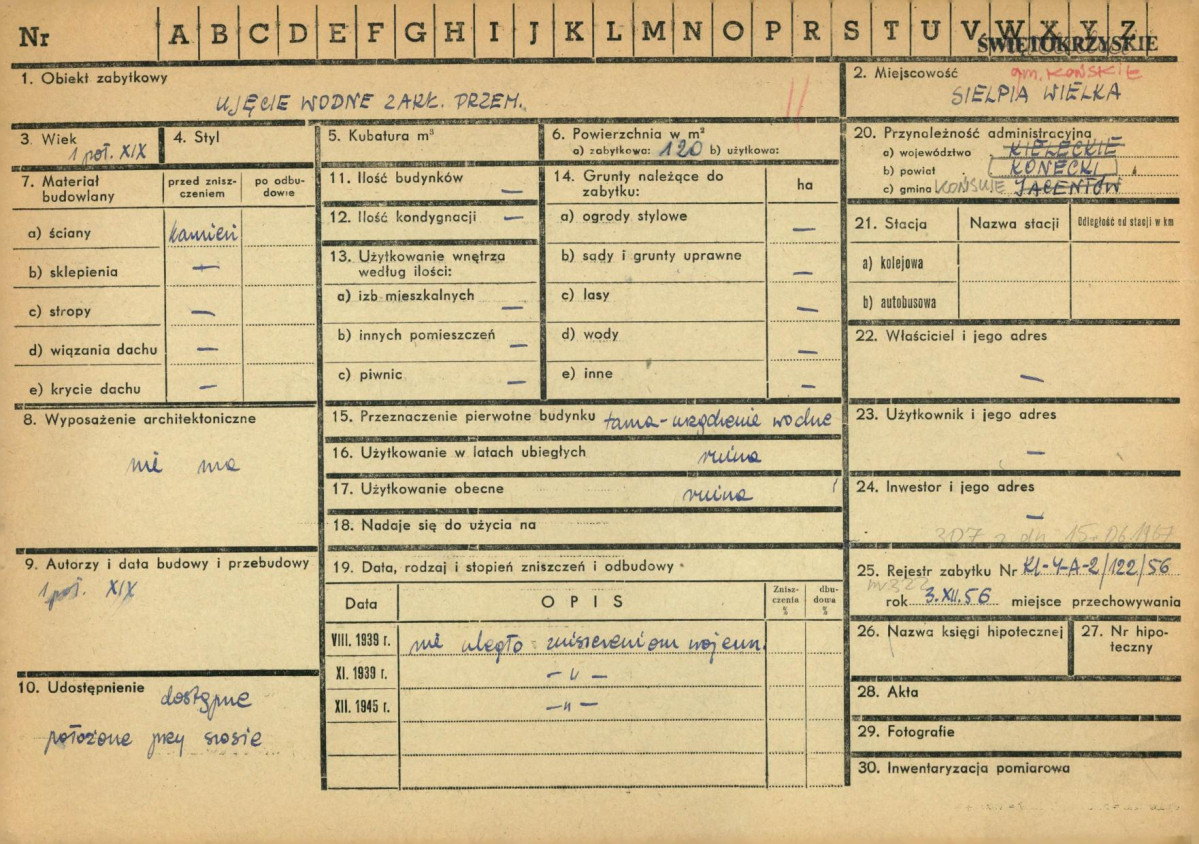 Nr A B C D E F G H I J K L M N O P R S T U V W X Y Z
ŚWIĘTOKRZYSKIE
1. Obiekt zabytkowy
UJĘCIE WODNE ZAKŁ. PRZEM.
2. Miejscowość
gm. KOŃSKIE
SIELPIA WIELKA
3. Wiek
1 poł. XIX
4. Styl
5. Kubatura m³
6. Powierzchnia w m²
a) zabytkowa: 120 b) użytkowa:
20. Przynależność administracyjna
a) województwo KIELECKIE
b) powiat KONECKI
c) gmina KOŃSKIE JACENTÓW
7. Materiał budowlany
przed znisz-
czeniem
po odbu-
dowie
a) ściany kamień
b) sklepienia —
c) stropy —
d) wiązania dachu —
e) krycie dachu —
11. Ilość budynków —
12. Ilość kondygnacji —
13. Użytkowanie wnętrza
według ilości:
a) izb mieszkalnych —
b) innych pomieszczeń —
c) piwnic —
14. Grunty należące do
zabytku:
ha
a) ogrody stylowe —
b) sady i grunty uprawne —
c) lasy —
d) wody —
e) inne —
21. Stacja
Nazwa stacji
Odległość od stacji w km
a) kolejowa
b) autobusowa
22. Właściciel i jego adres
—
23. Użytkownik i jego adres
—
24. Inwestor i jego adres
—
8. Wyposażenie architektoniczne
nie ma
15. Przeznaczenie pierwotne budynku tama - urządzenie wodne
16. Użytkowanie w latach ubiegłych ruina
17. Użytkowanie obecne ruina
18. Nadaje się do użycia na
9. Autorzy i data budowy i przebudowy
1 poł. XIX
19. Data, rodzaj i stopień zniszczeń i odbudowy
Data
OPIS
Znisz-
czenia
%
dbu-
dowa
%
VIII. 1939 r. nie uległo zniszczeniom wojenn.
XI. 1939 r. — „ —
XII. 1945 r. — „ —
10. Udostępnienie dostępne
położone przy szosie
307 z dn. 15.06.1967
25. Rejestr zabytku Nr Kl-V-A-2/122/56
nr 322
rok 3.XII.56 miejsce przechowywania
26. Nazwa księgi hipotecznej
27. Nr hipo-
teczny
28. Akta
29. Fotografie
30. Inwentaryzacja pomiarowa